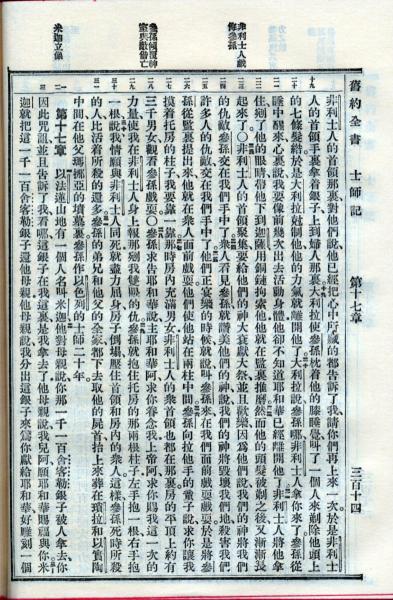 舊約全書 士師記 第十七章 三百十四
非利士人戲侮參孫
參孫傾覆神室與敵偕亡
米迦立像
非利士人的首領那裏對他們說他已經把心中所藏的都告訴了我請你們再上來一次於是非利士
人的首領手裏拿着銀子上到婦人那裏大利拉使參孫枕着他的膝睡覺呌了一個人來剃除他頭上
的七條髮綹於是大利拉尅制他他的力氣就離開他了大利拉說參孫哪非利士人拿你來了參孫從
睡中醒來心裏說我要像前幾次出去活動身體他卻不知道耶和華已經離開他了非利士人將他拿
住剜了他的眼睛帶他下到迦薩用銅鏈拘索他他就在監裏推磨然而他的頭髮被剃之後又漸漸長
起來了○非利士人的首領聚集要給他們的神大袞獻大祭並且歡樂因爲他們說我們的神將我們
的仇敵參孫交在我們手中了衆人看見參孫就讚美他們的神說我們的神將毀壞我們地殺害我們
許多人的仇敵交在我們手中了他們正宴樂的時候就說呌參孫來在我們面前戲耍戲耍於是將參
孫從監裏提出來他就在衆人面前戲耍他們使他站在兩柱中間參孫向拉他手的童子說求你讓我
摸着托房的柱子我要靠一靠那時房內充滿男女非利士人的衆首領也都在那裏房的平頂上約有
三千男女觀看參孫戲耍○參孫求告耶和華說主耶和華阿求你眷念我 帝阿求你賜我這一次的
力量使我在非利士人身上報那剜我雙眼的仇參孫就抱住托房的那兩根柱子左手抱一根右手抱
一根說我情願與非利士人同死就盡力屈身房子倒塌壓住首領和房內的衆人這樣參孫死時所殺
的人比活着所殺的還多參孫的弟兄和他父的全家都下去取他的屍首抬上來葬在瑣拉和以實陶
中間在他父瑪挪亞的墳墓裏參孫作以色列的士師二十年
第十七章 以法蓮山地有一個人名叫米迦他對母親說你那一千一百舍客勒銀子被人拿去你
因此咒詛並且告訴了我看哪這銀子在我這裏是我拿去了他母親說我兒阿願耶和華賜福與你米
迦就把這一千一百舍客勒銀子還他母親他母親說我分出這銀子來爲你獻給耶和華好雕刻一個